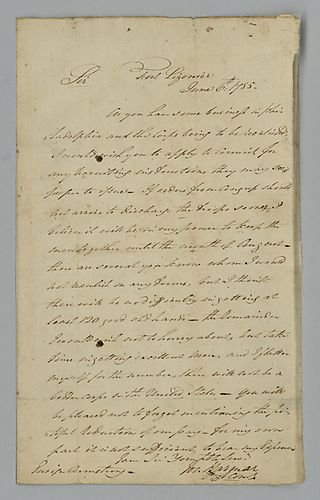 Sir
Fort Pizonier
June 6th 1785.
As you have some business in phi
ladelphia and the Corps being to be
I would wish you to apply to for
any recruiting instructions they may
propose to — If orders from Congress should
not arrive to discharge the troops sooner, I
believe it will be in my power to keep the
men together until the month of August —
there are several you know whom I would
not reenlist on any terms, but I think
there will be no difficulty in getting at
least 120 good old hands — the remainder
I would wish not to hurry about, but take
time in getting excellent men, and I flatter
myself for the number, there will not be a
better corps in the United States — You will
be pleased not to forget mentioning the pi
tiful reduction of my pay — for my own
part it is not sufficient to bear my Expences
I am Sir Your Hble Servt
Jos. Harmar
Lt Col Comt
Ensign Armstrong —